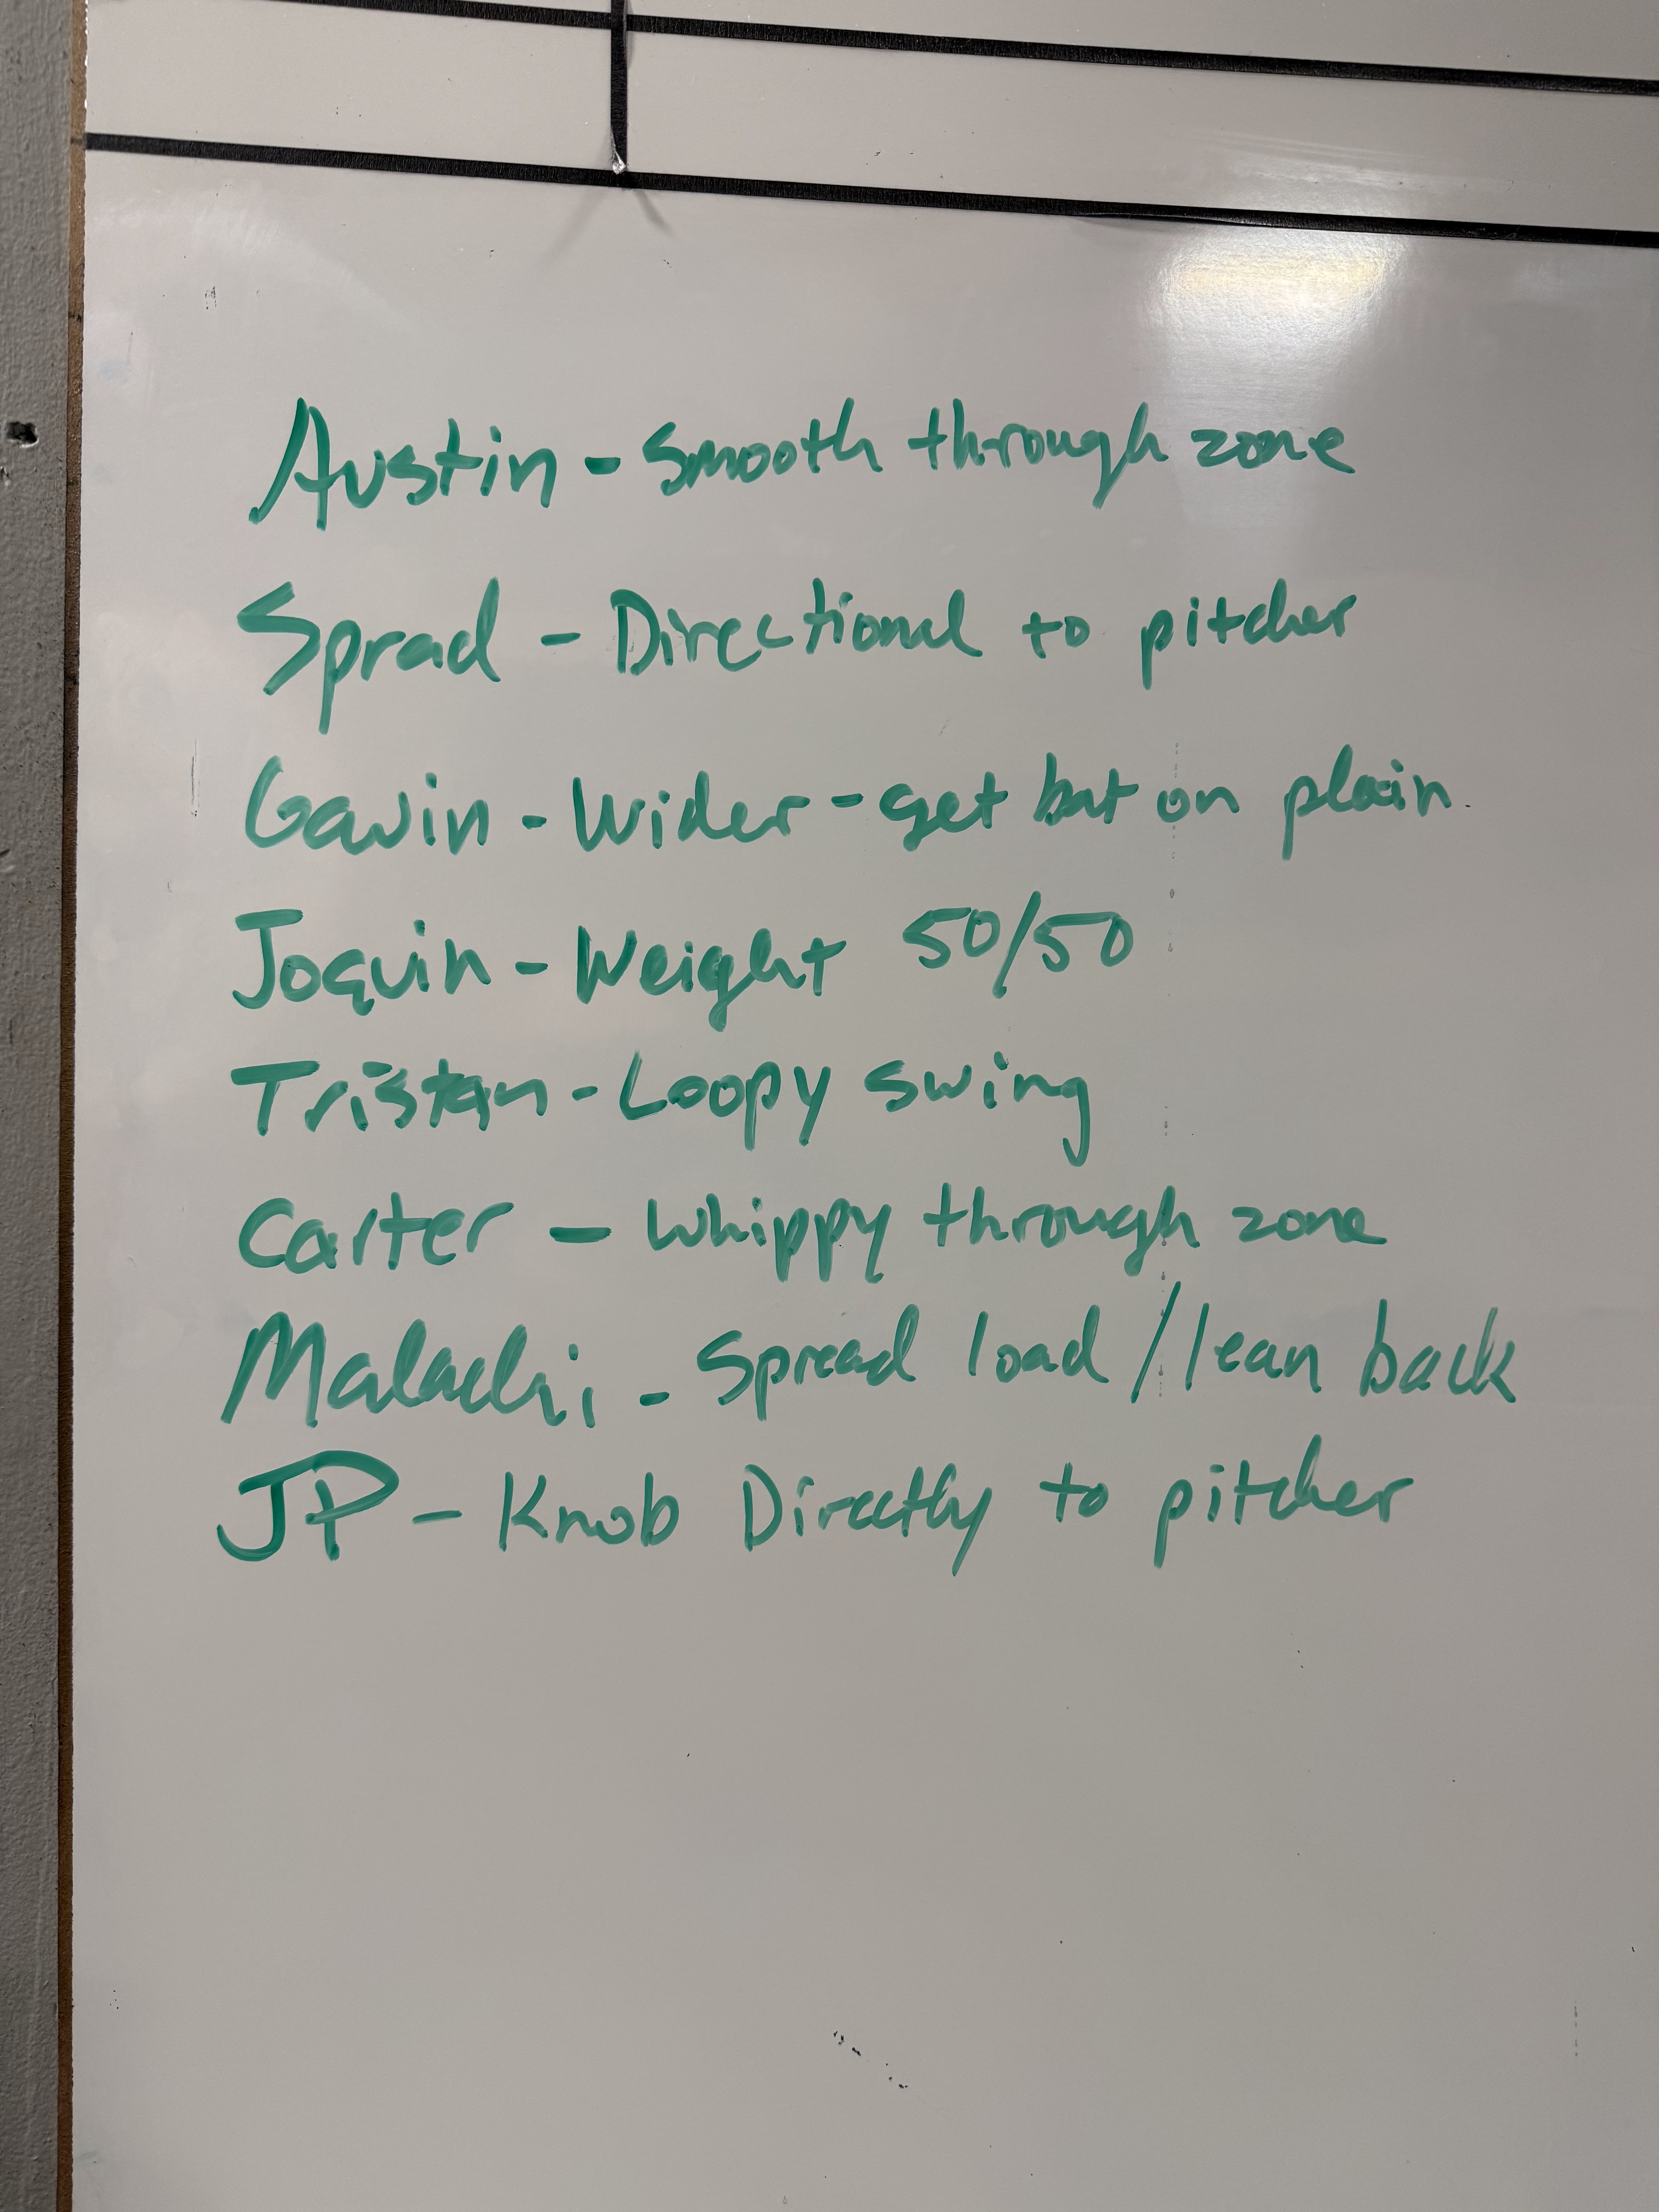 Austin - Smooth through zone
Sprad - Directional to pitcher
Gavin - Wider - get bat on plain.
Joquin - Weight 50/50
Tristan - Loopy swing
Carter - Whippy through zone
Malachi - Spread load / lean back
JP - Knob Directly to pitcher